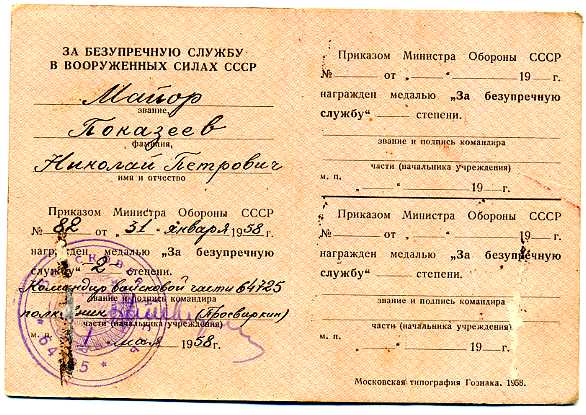 ЗА БЕЗУПРЕЧНУЮ СЛУЖБУ
В ВООРУЖЕННЫХ СИЛАХ СССР
Майор
звание
Показеев
фамилия,
Николай Петрович
имя и отчество
Приказом Министра Обороны СССР
№ 82 от „31" января 1958 г.
награжден медалью „За безупречную
службу" 2 степени.
Командир войсковой части 64725
звание и подпись командира
полковник (Просвиркин)
части (начальника учреждения)
м. п. мая 1958 г.
Приказом Министра Обороны СССР
№ от „ " 19 г.
награжден медалью „За безупречную
службу" степени.
звание и подпись командира
части (начальника учреждения)
м. п. „ " 19 г.
Приказом Министра Обороны СССР
№ от „ " 19 г.
награжден медалью „За безупречную
службу" степени.
звание и подпись командира
части (начальника учреждения)
м. п. „ " 19 г.
Московская типография Гознака. 1958.